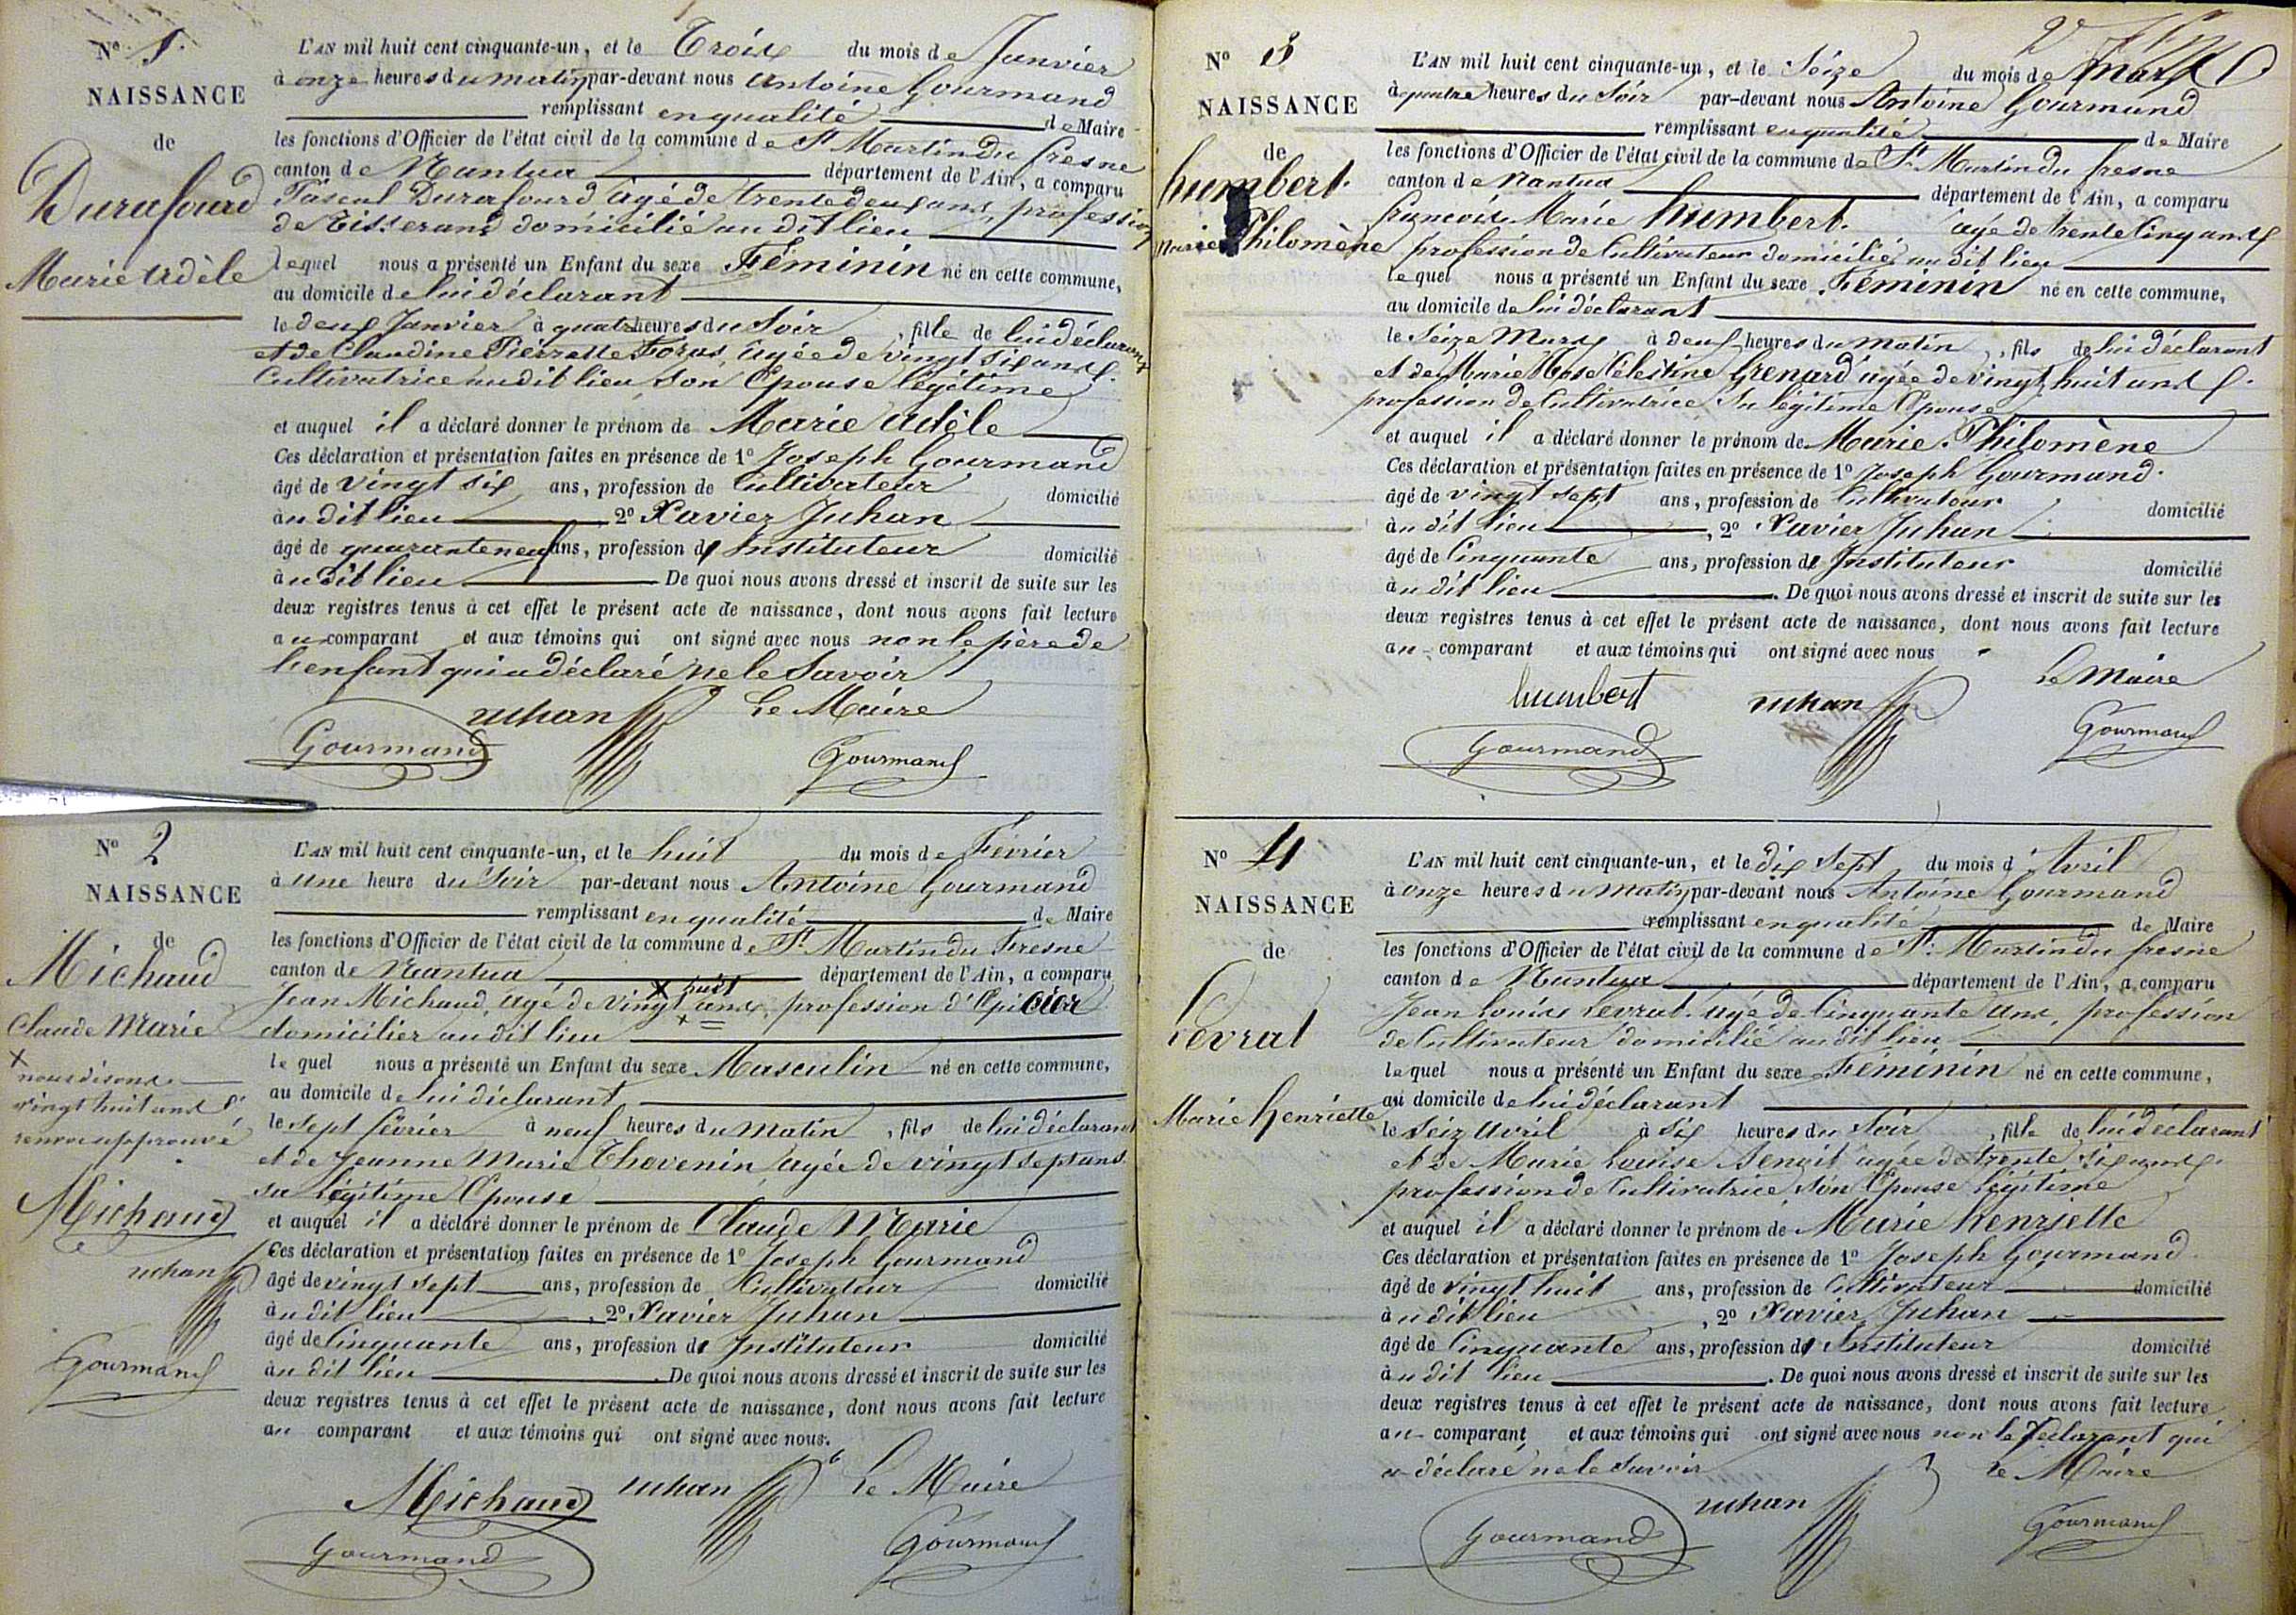 N° 1.
NAISSANCE
de
Durafourd
Marie Adèle
L'AN mil huit cent cinquante-un, et le Trois du mois de Janvier
à onze heures du matin par-devant nous Antoine Gourmand
remplissant en qualité de Maire
les fonctions d'Officier de l'état civil de la commune de St Martin du fresne
canton de Nantua département de l'Ain, a comparu
Pascal Durafourd âgé de trente deux ans, profession
de Tisserand domicilié au dit lieu
lequel nous a présenté un Enfant du sexe Féminin né en cette commune,
au domicile de lui déclarant
le deux Janvier à quatre heures du Soir, fille de lui déclarant
et de Claudine Pierrette Foras, âgée de vingt six ans
Cultivatrice au dit lieu son Epouse légitime
et auquel il a déclaré donner le prénom de Marie Adèle
Ces déclaration et présentation faites en présence de 1° Joseph Gourmand
âgé de vingt six ans, profession de Cultivateur domicilié
au dit lieu 2° Xavier Juhan
âgé de quarante neuf ans, profession d' Instituteur domicilié
au dit lieu De quoi nous avons dressé et inscrit de suite sur les
deux registres tenus à cet effet le présent acte de naissance, dont nous avons fait lecture
au comparant et aux témoins qui ont signé avec nous non le père de
l'enfant qui a déclaré ne le Savoir
Juhan Le Maire
Gourmand Gourmand
N° 2
NAISSANCE
de
Michaud
Claude Marie
x
nous disons
vingt huit ans
renvoi approuvé
Michaud
Juhan
Gourmand
L'AN mil huit cent cinquante-un, et le huit du mois de Février
à une heure du Soir par-devant nous Antoine Gourmand
remplissant en qualité de Maire
les fonctions d'Officier de l'état civil de la commune de St Martin du Fresne
canton de Nantua département de l'Ain, a comparu
x huit
Jean Michaud, âgé de vingt ans, profession d'Epicier
domicilier au dit lieu
lequel nous a présenté un Enfant du sexe Masculin né en cette commune,
au domicile de lui déclarant
le sept février à neuf heures du Matin, fils de lui déclarant
et de Jeanne Marie Thovenin âgée de vingt sept ans
sa légitime Epouse
et auquel il a déclaré donner le prénom de Claude Marie
Ces déclaration et présentation faites en présence de 1° Joseph Gourmand
âgé de vingt sept ans, profession de Cultivateur domicilié
au dit lieu, 2° Xavier Juhan
âgé de Cinquante ans, profession d' Instituteur domicilié
au dit lieu. De quoi nous avons dressé et inscrit de suite sur les
deux registres tenus à cet effet le présent acte de naissance, dont nous avons fait lecture
au comparant et aux témoins qui ont signé avec nous.
Michaud Juhan Le Maire
Gourmand Gourmand
N° 3
NAISSANCE
de
humbert.
Marie Philomène
L'AN mil huit cent cinquante-un, et le Seize du mois de Mars
à quatre heures du Soir par-devant nous Antoine Gourmand
remplissant en qualité de Maire
les fonctions d'Officier de l'état civil de la commune de St Martin du fresne
canton de Nantua département de l'Ain, a comparu
francois Marie humbert. âgé de trente Cinq ans
profession de Cultivateur domicilié au dit lieu
lequel nous a présenté un Enfant du sexe Féminin né en cette commune,
au domicile de lui déclarant
le Seize Mars à deux heures du matin, fils de lui déclarant
et de Marie Rose Célestine Grenard âgée de vingt huit ans
profession de Cultivatrice Sa légitime Epouse
et auquel il a déclaré donner le prénom de Marie Philomène
Ces déclaration et présentation faites en présence de 1° Joseph Gourmand.
âgé de vingt sept ans, profession de Cultivateur domicilié
au dit lieu, 2° Xavier Juhan
âgé de Cinquante ans, profession d' Instituteur domicilié
au dit lieu. De quoi nous avons dressé et inscrit de suite sur les
deux registres tenus à cet effet le présent acte de naissance, dont nous avons fait lecture
au comparant et aux témoins qui ont signé avec nous
Le Maire
humbert Juhan
Gourmand Gourmand
N° 4
NAISSANCE
de
Levrat
Marie henriette
L'AN mil huit cent cinquante-un, et le dix Sept du mois d'Avril
à onze heures du matin par-devant nous Antoine Gourmand
remplissant en qualité de Maire
les fonctions d'Officier de l'état civil de la commune de St Martin du fresne
canton de Nantua département de l'Ain, a comparu
Jean Louis Levrat. âgé de Cinquante ans, profession
de Cultivateur domicilié au dit lieu
lequel nous a présenté un Enfant du sexe Féminin né en cette commune,
au domicile de lui déclarant
le Seiz Avril à Six heures du Soir, fille de lui déclarant
et de Marie Louise Benoit âgée de trente six ans
profession de Cultivatrice Son Epouse légitime
et auquel il a déclaré donner le prénom de Marie henriette
Ces déclaration et présentation faites en présence de 1° Joseph Gourmand.
âgé de vingt huit ans, profession de Cultivateur domicilié
au dit lieu, 2° Xavier Juhan
âgé de Cinquante ans, profession d' Instituteur domicilié
au dit lieu. De quoi nous avons dressé et inscrit de suite sur les
deux registres tenus à cet effet le présent acte de naissance, dont nous avons fait lecture
au comparant et aux témoins qui ont signé avec nous non le déclarant qui
a déclaré ne le Savoir Le Maire
Juhan
Gourmand Gourmand